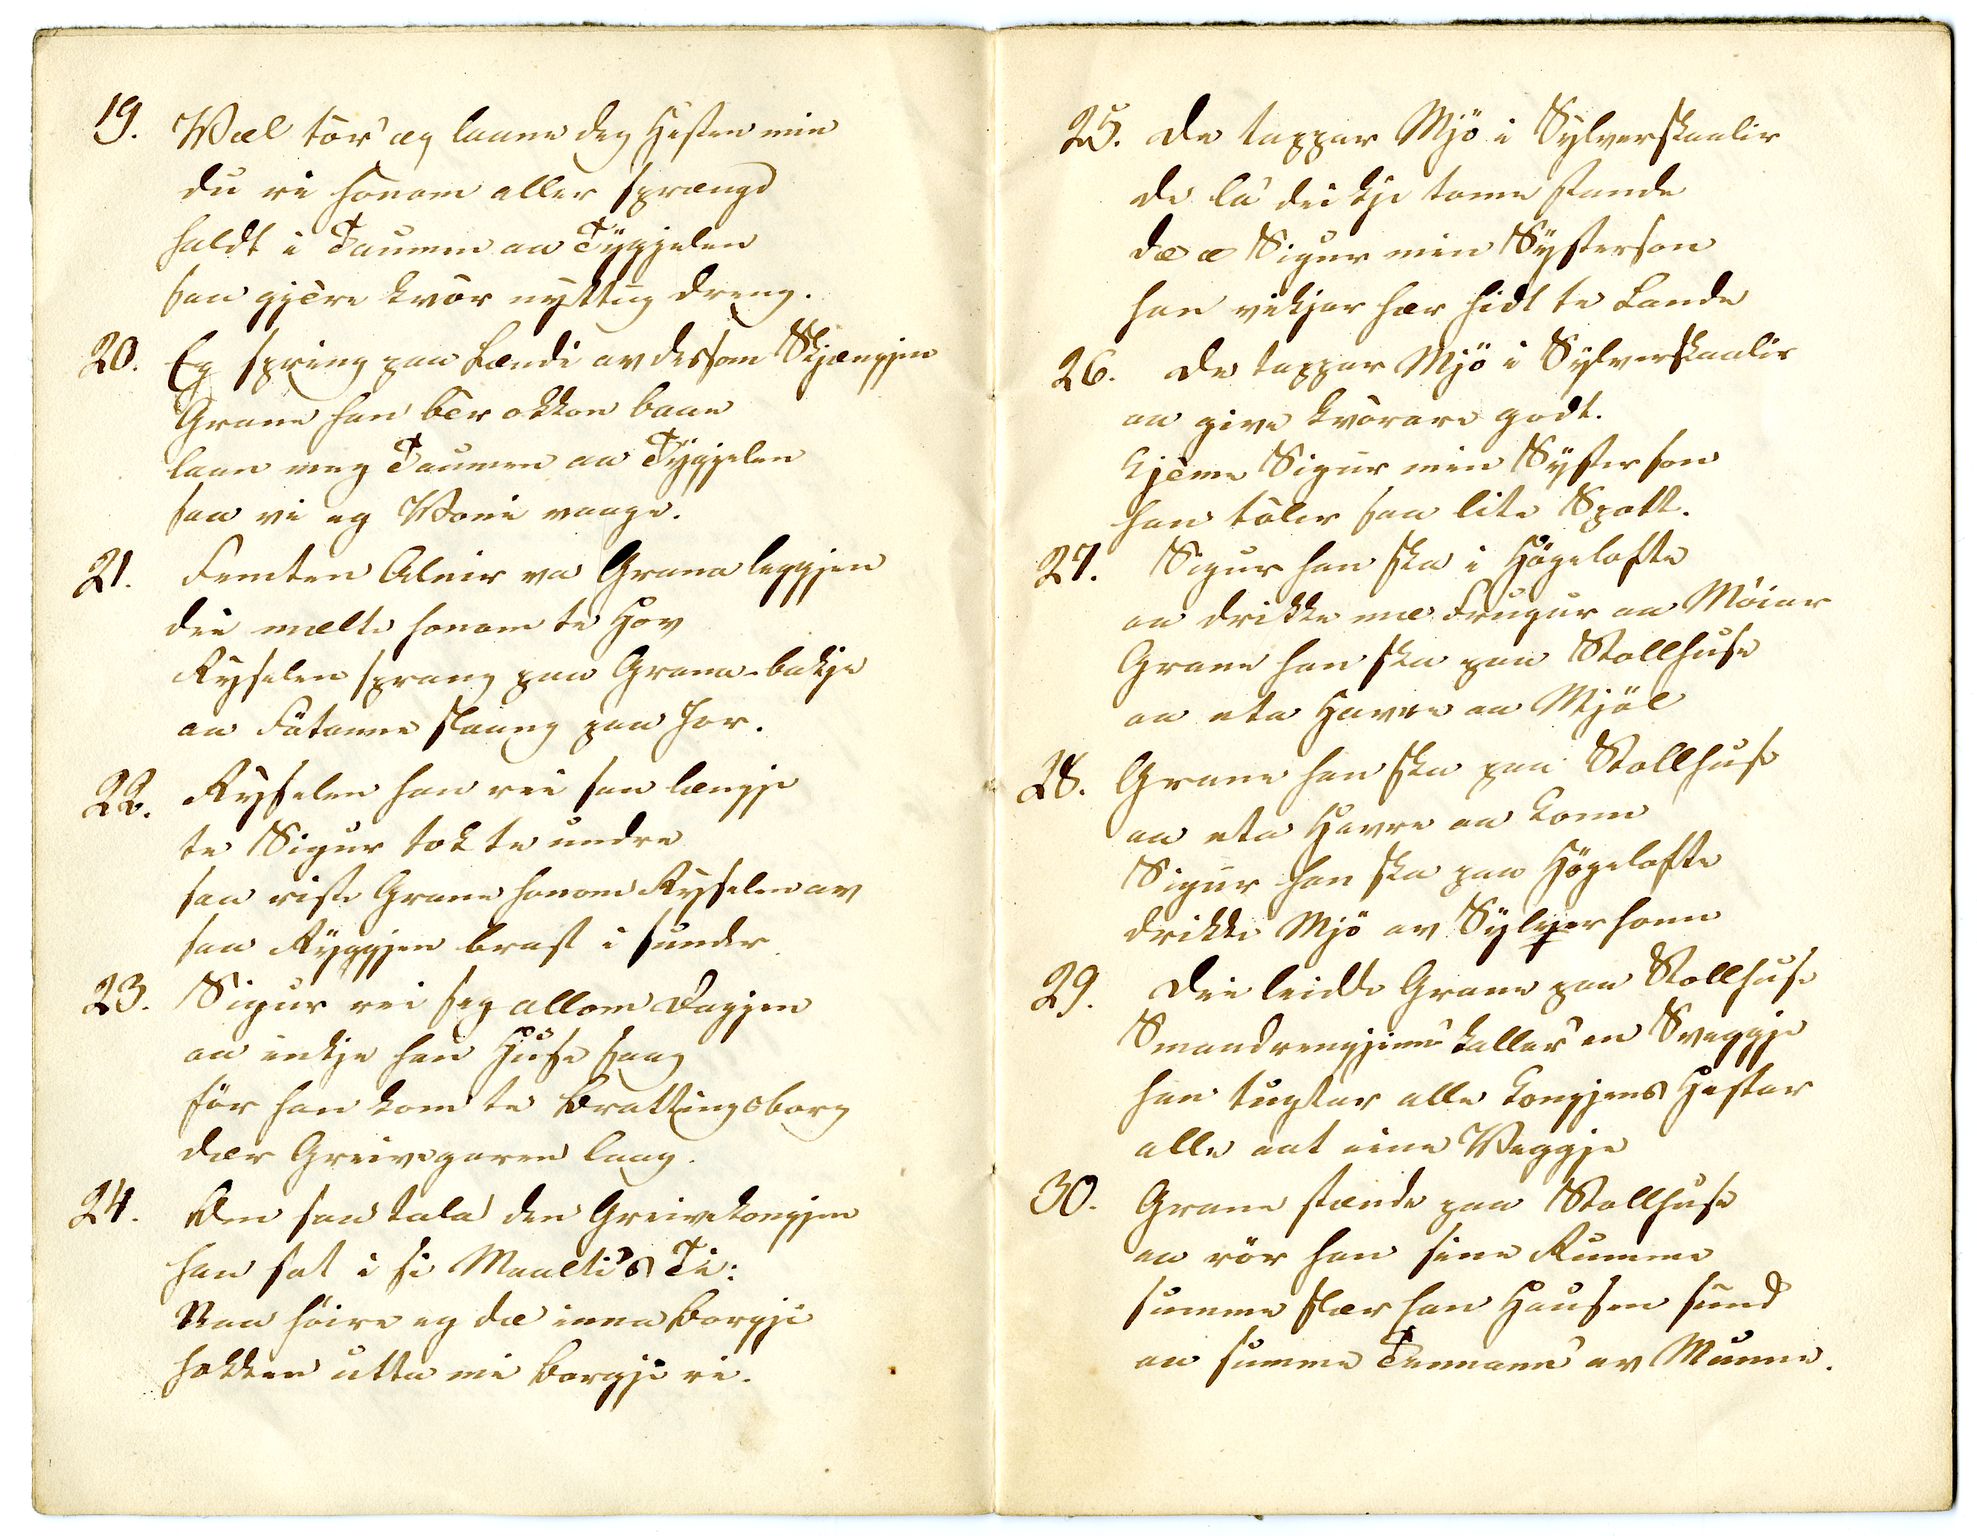 19. Wæl tör' æg laane deg Hesten min
du ri honom aller sprængd
haldt i Taumen aa Tygjelen
saa gjère kvòr nyttug dreng.
20. Eg spring paa Lændi av dessom Skjængjen
Grane han bèr okkon baae
laan meg Taumen aa Tygjelen
saa vi eg Voni vaage.
21. Femten Alnir va Grana leggjen
dei mælte honom te Hov
Ryselen sprang paa Grana-bakje
aa Fütanne slaang paa Jor.
22. Ryselen han rei saa længje
te Sigur tok te undre
saa riste Grane honom Ryselen av
saa Ryggjen brast i sunder
23. Sigur rei seg allom Daggjen
aa inkje han Huse saag
för han kom te Brattingsborg
dær Greivegaren laag.
24. Den saa tala den Greivekongjen
han sat i si Maalti's Ti:
Naa höire eg dæ inna Borgji
hokken utta mi Borgji ri.
25. De tappar Mjö i Sylverskaalir
de la' dei kje tome stande
dæ æ Sigur min Systerson
han vikjer hær hidt te Lande
26. De tappar Mjö i Sylverskaalir
aa give kvòrare godt.
kjème Sigur min Systerson
han tòler saa lite Spott.
27. Sigur han ska i Högelofte
aa drikke mæ Frugur aa Möiar
Grane han ska paa Stallhuse
aa eta Havre aa Mjöl
28. Grane han ska paa Stallhuse
aa eta Havre aa Konn
Sigur han ska paa Högelofte
drikke Mjö av Sylverhonn
29. Dei leidde Grane paa Stallhuse
Smaadrengjinn' kaller' en Sveggje
han tugtar alle Kongjens Hestar
alle aat eine Veggje
30. Grane stænde paa Stallhuse
aa rör han sine Rumme
summe slær han Hausen sund
aa summe Tennann' av Munne.